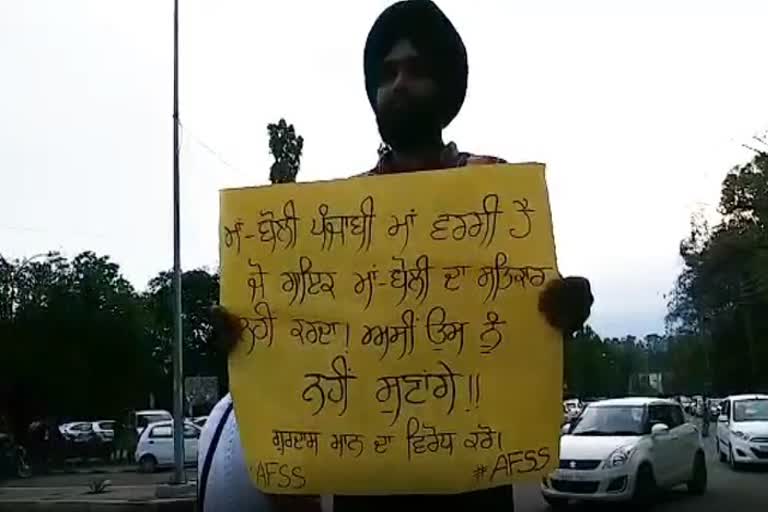 ਮਾਂ-ਬੋਲੀ ਪੰਜਾਬੀ ਮਾਂ ਵਰਗੀ ਹੈ
ਜੋ ਗਾਇਕ ਮਾਂ-ਬੋਲੀ ਦਾ ਸਤਿਕਾਰ
ਨਹੀਂ ਕਰਦਾ। ਅਸੀਂ ਉਸ ਨੂੰ
ਨਹੀਂ ਸੁਣਾਂਗੇ!!
ਗੁਰਦਾਸ ਮਾਨ ਦਾ ਵਿਰੋਧ ਕਰੋ।
#AFSS #AFSS